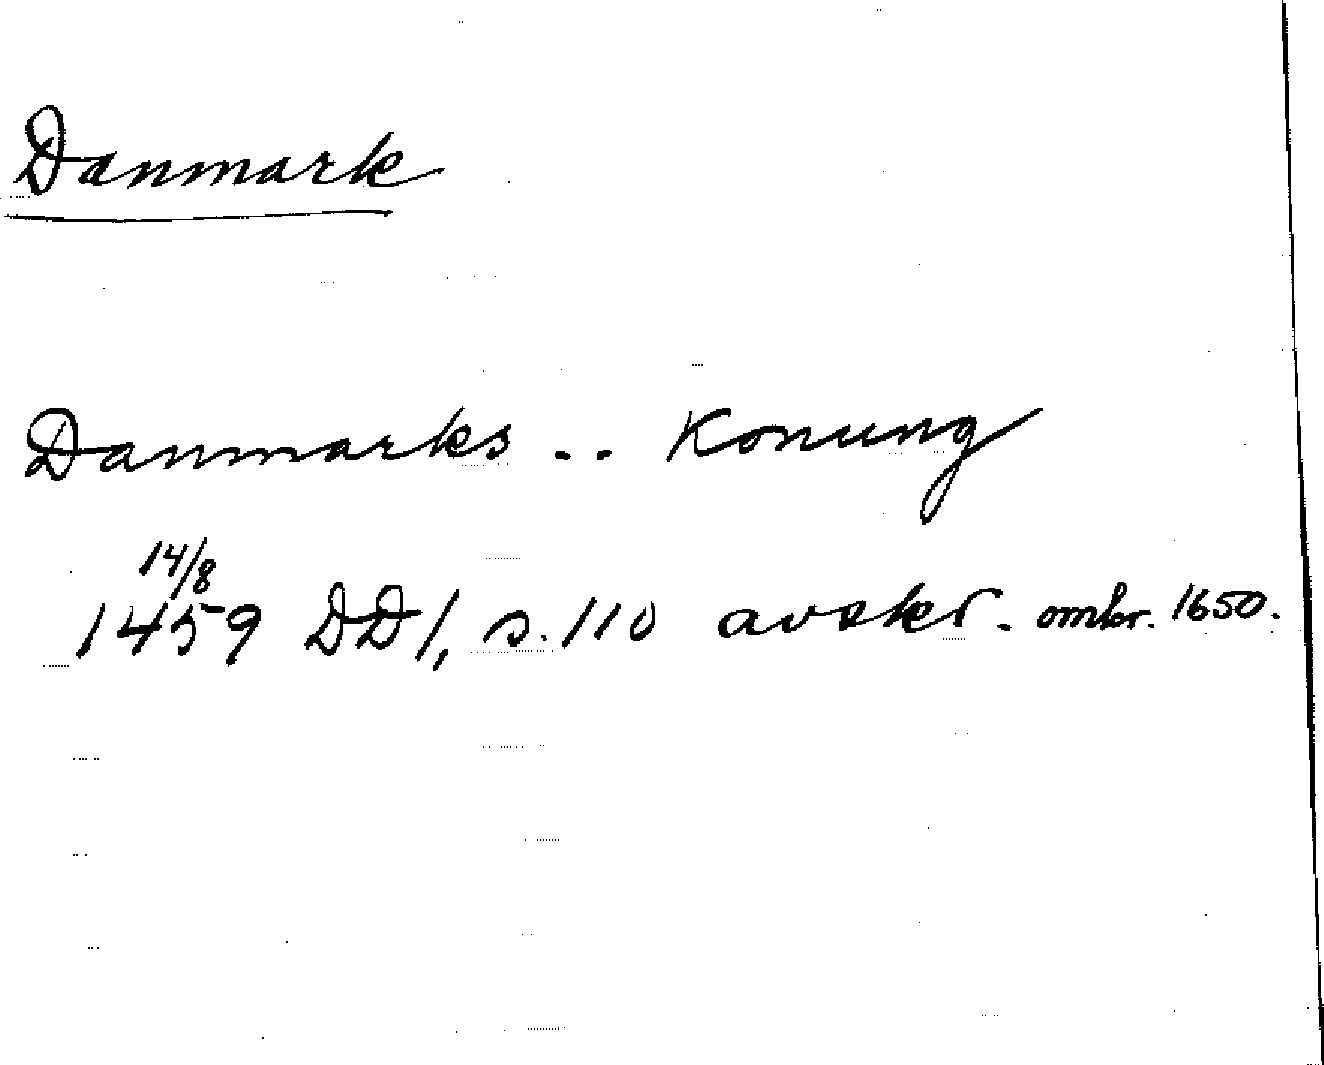 Danmark
Danmarks .. Konung
14/8
1459 DD1, s. 110 avskr. omkr. 1650.